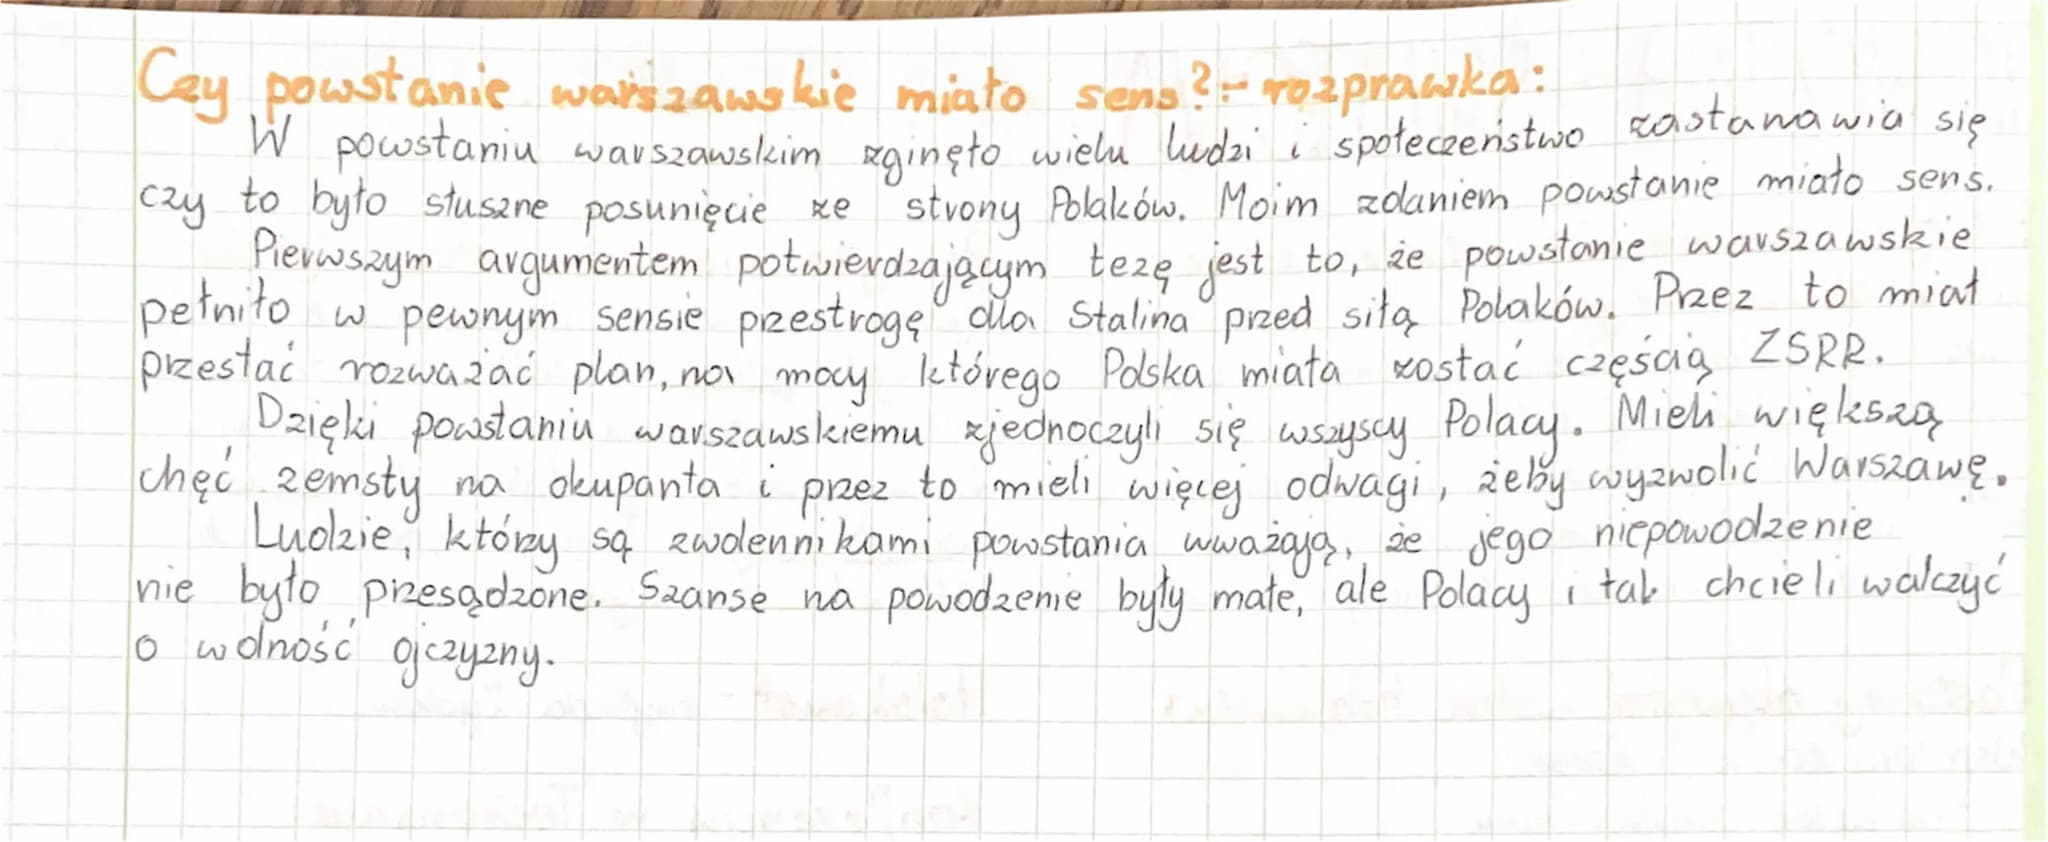 Czy powstanie warszawskie miało sens? - rozprawka:
W powstaniu warszawskim zginęło wielu ludzi i społeczeństwo zastanawia się
czy to było słuszne posunięcie ze strony Polaków. Moim zdaniem powstanie miało sens.
Pierwszym argumentem potwierdzającym tezę jest to, że powstanie warszawskie
pełniło w pewnym sensie przestrogę dla Stalina przed siłą Polaków. Przez to miał
przestać rozważać plan, na mocy którego Polska miała zostać częścią ZSRR.
Dzięki powstaniu warszawskiemu zjednoczyli się wszyscy Polacy. Mieli większą
chęć zemsty na okupanta i przez to mieli więcej odwagi, żeby wyzwolić Warszawę.
Ludzie, którzy są zwolennikami powstania uważają, że jego niepowodzenie
nie było przesądzone. Szanse na powodzenie były małe, ale Polacy i tak chcieli walczyć
o wolność ojczyzny.